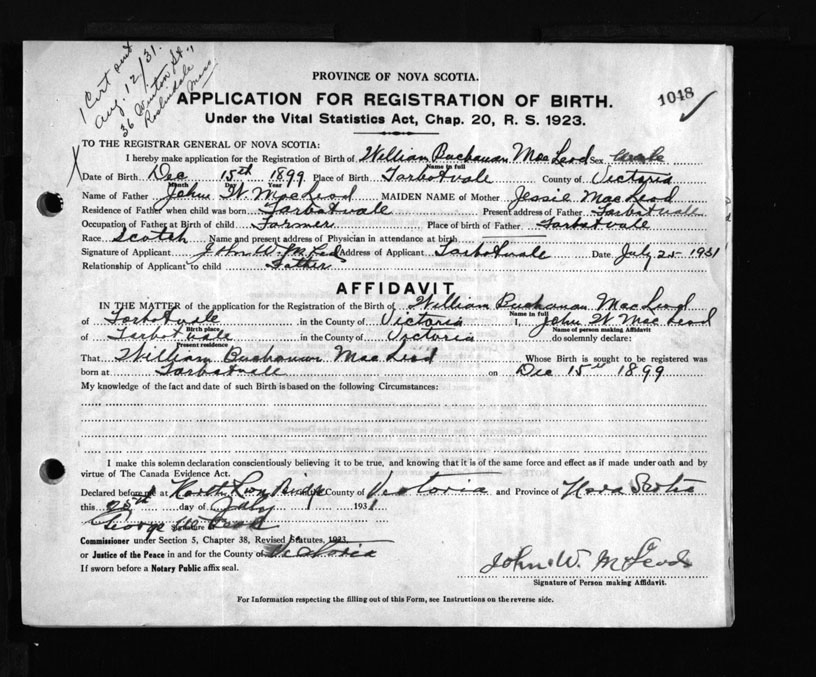 1 Cert sent
Aug. 12/31.
36 Winton St.,
Roslindale
Mass
PROVINCE OF NOVA SCOTIA.
1048
APPLICATION FOR REGISTRATION OF BIRTH.
Under the Vital Statistics Act, Chap. 20, R. S. 1923.
TO THE REGISTRAR GENERAL OF NOVA SCOTIA:
I hereby make application for the Registration of Birth of William Buchanan MacLeod Sex
Name in full
Date of Birth Dec 15th 1899 Place of Birth Tarbotvale County of Victoria
Month Day Year
Name of Father John W. MacLeod MAIDEN NAME of Mother Jessie MacLeod
Residence of Father when child was born Tarbotvale Present address of Father Tarbotvale
Occupation of Father at Birth of child Farmer Place of birth of Father Tarbotvale
Race Scotch Name and present address of Physician in attendance at birth
Signature of Applicant John W. McLeod Address of Applicant Tarbotvale Date July 25 1931
Relationship of Applicant to child Father
AFFIDAVIT.
IN THE MATTER of the application for the Registration of the Birth of William Buchanan MacLeod
Name in full
of Tarbotvale in the County of Victoria I, John W MacLeod
Birth place Name of person making Affidavit
of Tarbotvale in the County of Victoria do solemnly declare:
Present residence
That William Buchanan MacLeod Whose Birth is sought to be registered was
born at Tarbotvale on Dec 15th 1899
My knowledge of the fact and date of such Birth is based on the following Circumstances:
I make this solemn declaration conscientiously believing it to be true, and knowing that it is of the same force and effect as if made under oath and by
virtue of The Canada Evidence Act.
Declared before me at North River Bridge County of Victoria and Province of Nova Scotia
this 25th day of July 1931
George
Signature
Commissioner under Section 5, Chapter 38, Revised Statutes, 1923,
or Justice of the Peace in and for the County of Victoria
If sworn before a Notary Public affix seal.
John W. McLeod
Signature of Person making Affidavit.
For Information respecting the filling out of this Form, see Instructions on the reverse side.